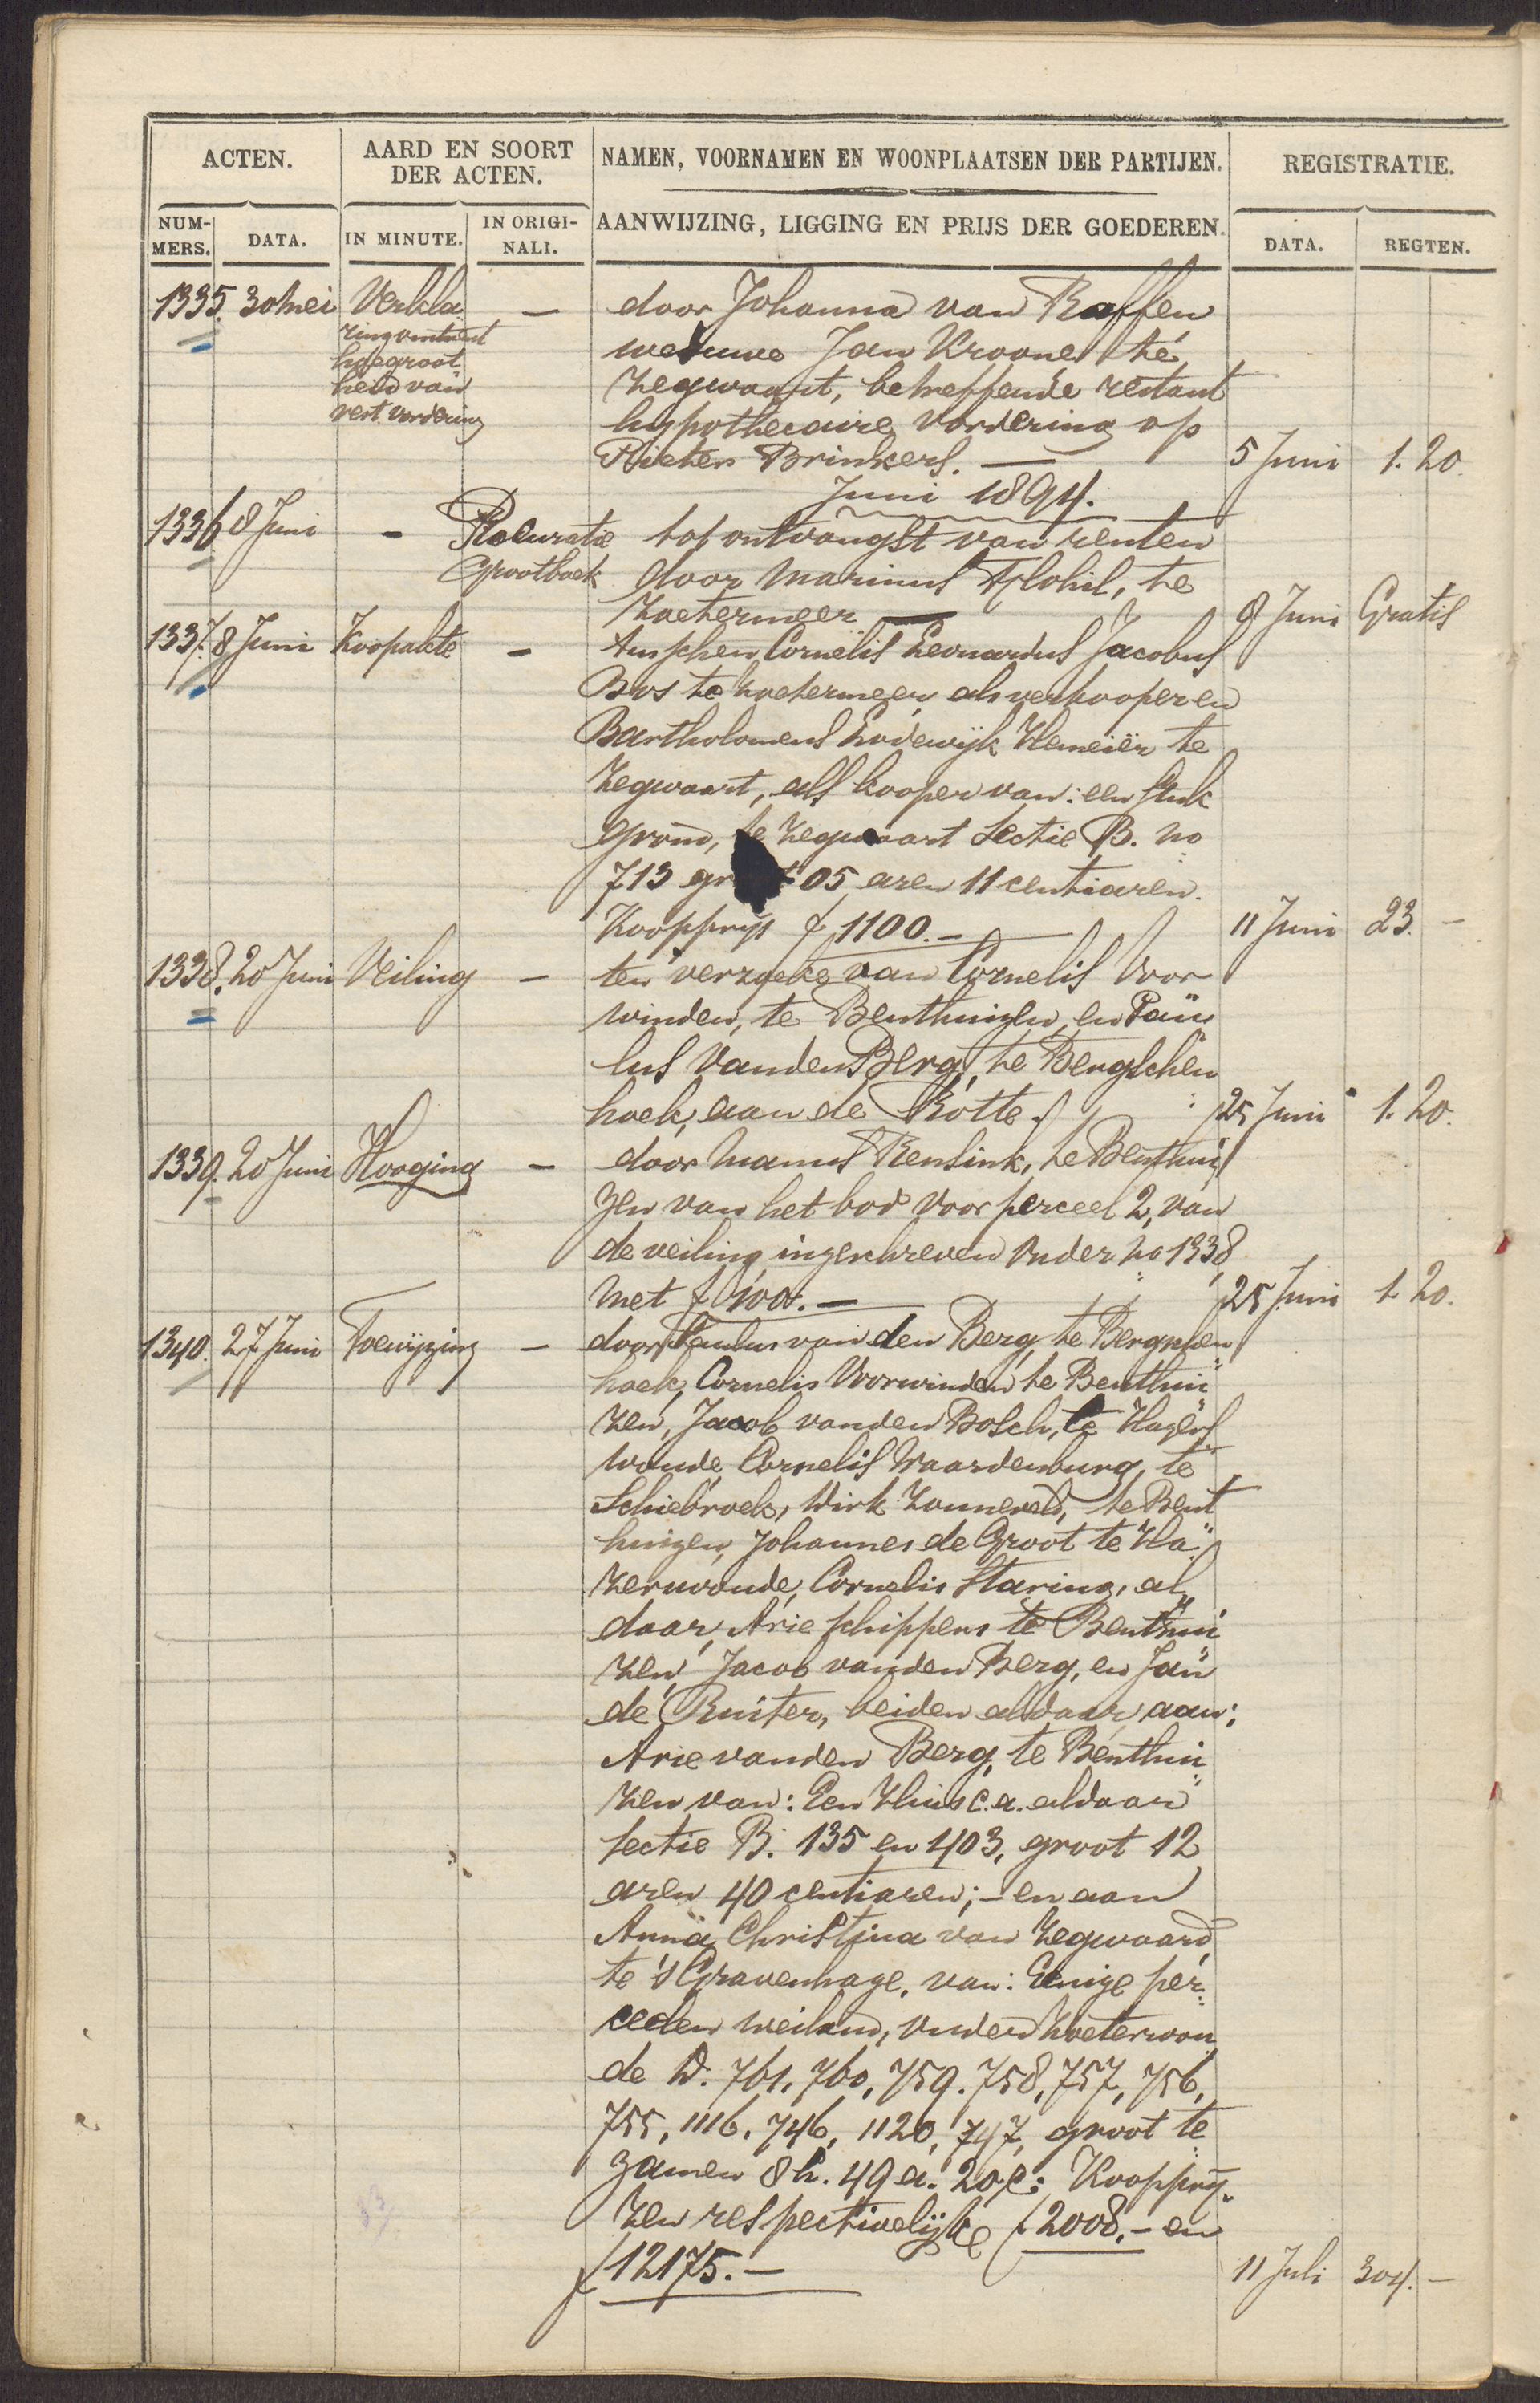 ACTEN. AARD EN SOORT DER ACTEN. NAMEN, VOORNAMEN EN WOONPLAATSEN DER PARTIJEN. REGISTRATIE.
NUM-MERS. DATA. IN MINUTE. IN ORIGI-NALI. AANWIJZING, LIGGING EN PRIJS DER GOEDEREN. DATA. REGTEN.
1335. 30 Mei Verkla — door Johanna van Raffen
ring omtrent weduwe Jan Kroone te
hoegroot Zegwaart, betreffende restant
heid van hypothecaire vordering op
rest. vordering Pieter Brinkers. — 5 Juni 1.20.
Juni 1894.
1336 8 Juni - Procuratie tot ontvangst van renten
Grootboek door Marinus Flohil, te
Zoetermeer — 8 Juni Gratis
1337. 8 Juni Koopakte - tusschen Cornelis Leonardus Jacobus
Bos te Zoetermeer als verkooper en
Bartholomeus Lodewijk Hemeiër te
Zegwaart, als kooper van: een stuk
grond, te Zegwaart Sectie B. no
713 groot 05 aren 11 centiaren.
Koopprijs f 1100.— 11 Juni 23.—
1338. 20 Juni Veiling - ten verzoeke van Cornelis Voor
winden, te Benthuizen, en Pau
lus van den Berg, te Bergschen
hoek, aan de Rotte. 25 Juni 1.20.
1339. 20 Juni Hooging - door Manus Rensink, te Benthui
zen van het bod voor perceel 2, van
de veiling ingeschreven onder no 1338
met f 100.— 25 Juni 1.20.
1340. 27 Juni Toewijzing - door Paulus van den Berg, te Bergschen
hoek, Cornelis Voorwinden te Benthui
zen, Jacob van den Bosch, te Hazers
woude, Cornelis Waardenburg, te
Schiebroek, Dirk Zonneveld, te Bent
huizen, Johannes de Groot te Ha
zerswoude, Cornelis Staring, al
daar, Arie Schippers te Benthui
zen, Jacob van den Berg, en Jan
de Ruiter, beiden aldaar aan:
Arie van den Berg, te Benthui
zen van: Een Huis c.a. aldaar
Sectie B. 135 en 403, groot 12
aren 40 centiaren;— en aan
Anna Christina van Zegwaard
te 's Gravenhage, van: Eenige per
ceelen weiland, onder Zoeterwou
de D. 761, 760, 759. 758, 757, 756,
755, 1116. 746, 1120, 747, groot te
zamen 8 h. 49 a. 20 c: Kooppry
zen respectivelijk f 2008.— en
f 12175.— 11 Juli 304.—